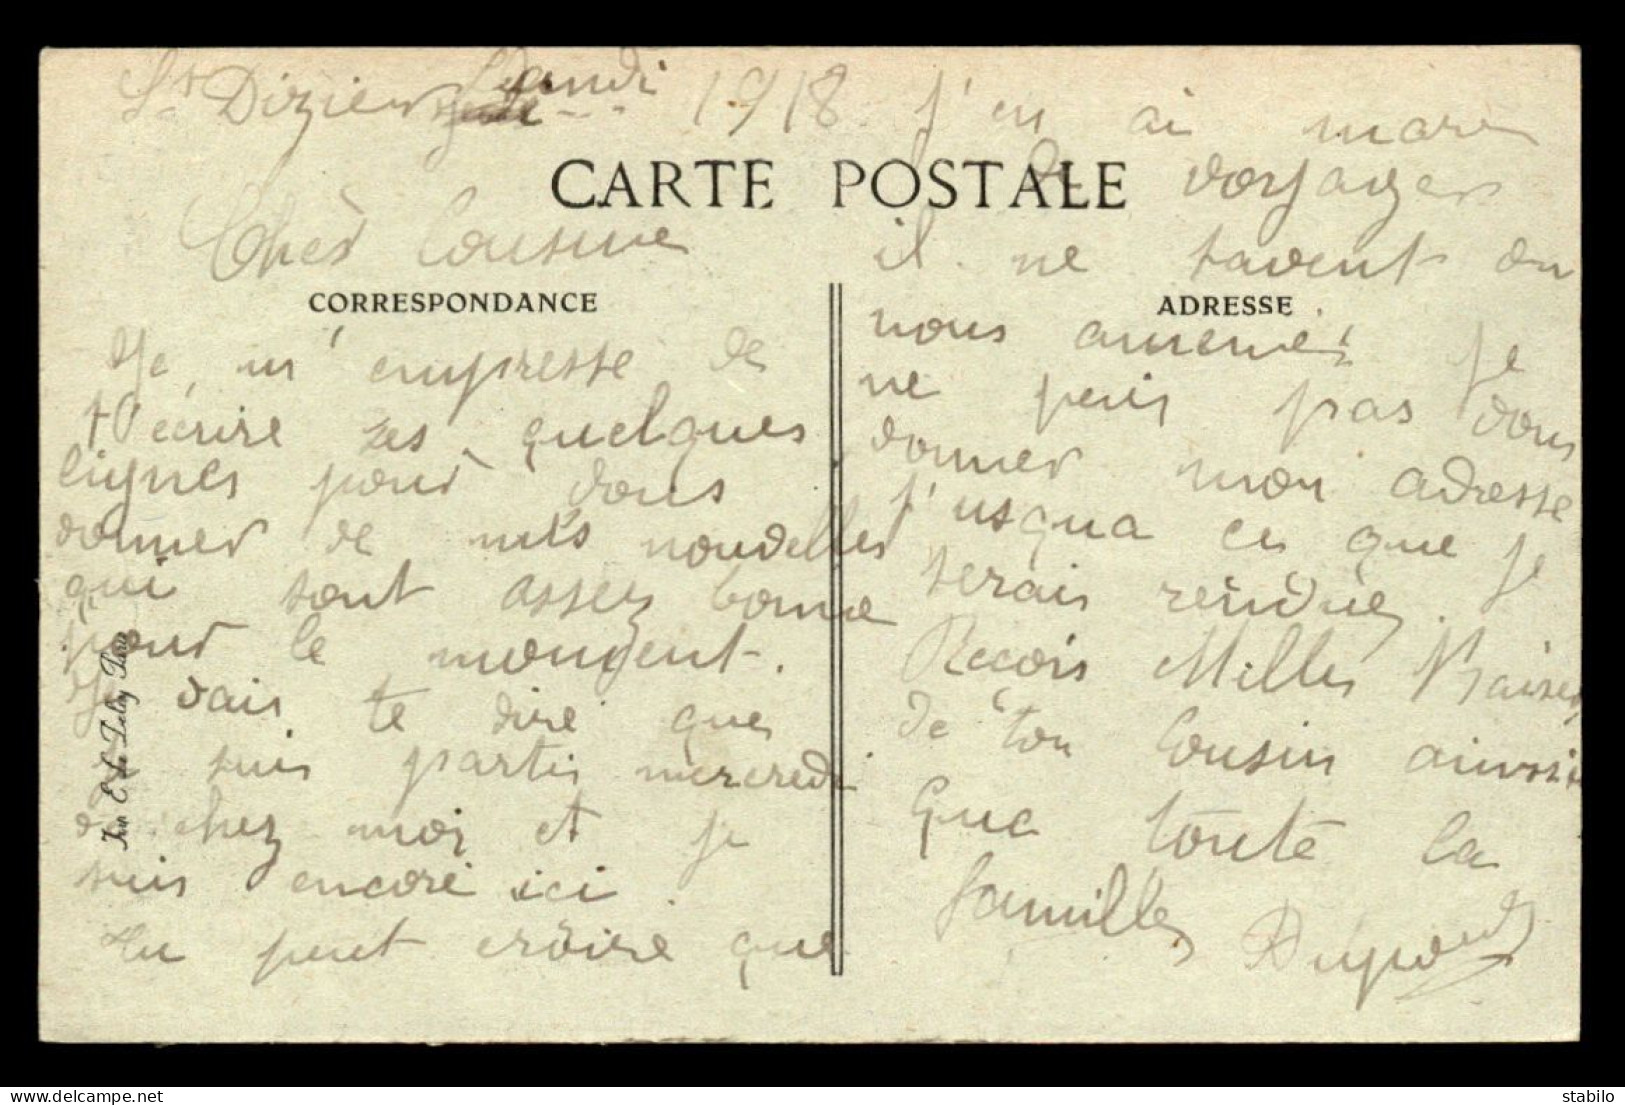 St Dizier Landi 1918
CARTE POSTALE
Chèr Cousine
CORRESPONDANCE
Je m'empresse de
t'écrire ses quelques
lignes pour vous
donner de mes nouvelles
qui sont assez bonne
pour le moment.
Je vais te dire que
je suis partis mercredi
de chez moi et je
suis encore ici
tu peut croire que
j'en ai mare
de voyager
il ne savent ou
nous amener
ADRESSE
Je
ne peus pas vous
donner mon adresse
j'usqua ce que je
serais rendue. Je
Recois Milles Baiser
de ton Cousin ainssi
que toute la
famille
Dupont
Imp. E. Le Deley Paris
delcampe.net
stabilo